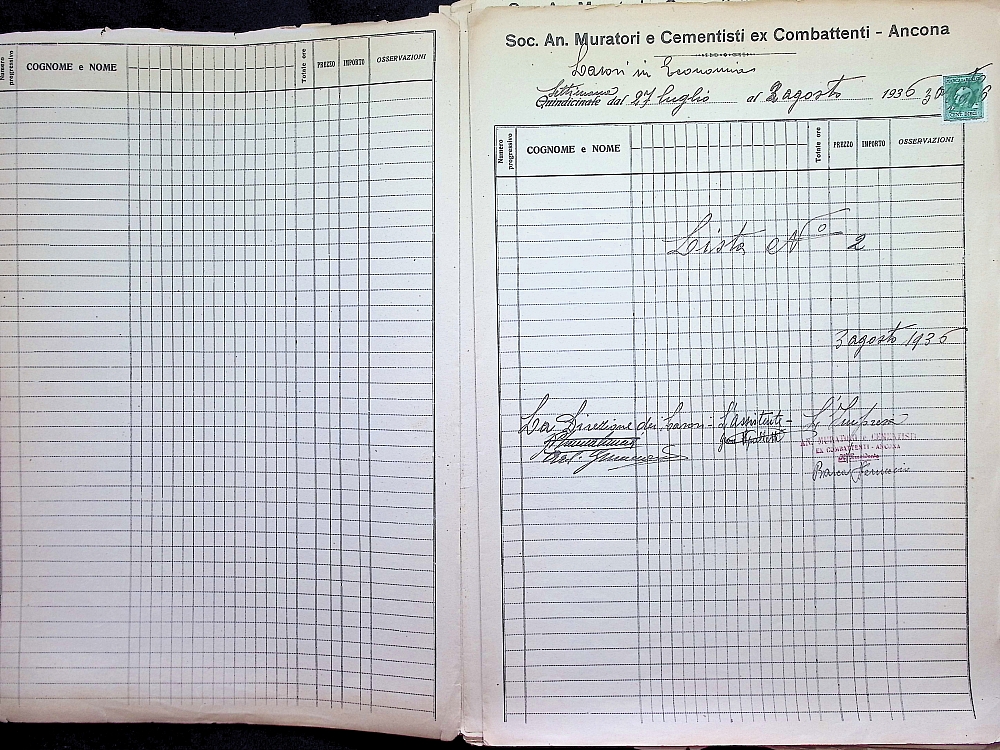 Numero progressivo
COGNOME e NOME
Totale ore
PREZZO
IMPORTO
OSSERVAZIONI
Soc. An. Muratori e Cementisti ex Combattenti - Ancona
Lavori in Economia
Settimana
Quindicinale dal 27 luglio al 2 agosto 1936
Numero progressivo
COGNOME e NOME
Totale ore
PREZZO
IMPORTO
OSSERVAZIONI
Lista N° 2
3 agosto 1936
La Direzione dei Lavori - L'Assistente - L'Impresa
AN. MURATORI e CEMENTISTI
EX COMBATTENTI - ANCONA